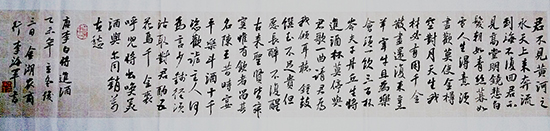 君不見黃河之
水天上來奔流
到海不復回君不
見高堂明鏡悲白
髮朝如青絲暮如
雪人生得意須
盡歡莫使金樽
空對月天生我
材必有用千金
散盡還復來烹
羊宰牛且為樂
會須一飲三百杯
岑夫子丹丘生將
進酒杯莫停與
君歌一曲請君為
我傾耳聽鐘鼓
饌玉不足貴但
願長醉不願醒
古來聖賢皆寂
寞惟有飲者留其
名陳王昔時宴
平樂斗酒十千
恣歡謔主人何
為言少錢徑須
沽取對君酌五
花馬千金裘
呼兒將出換美
酒與爾同銷萬
古愁
唐李白將進酒